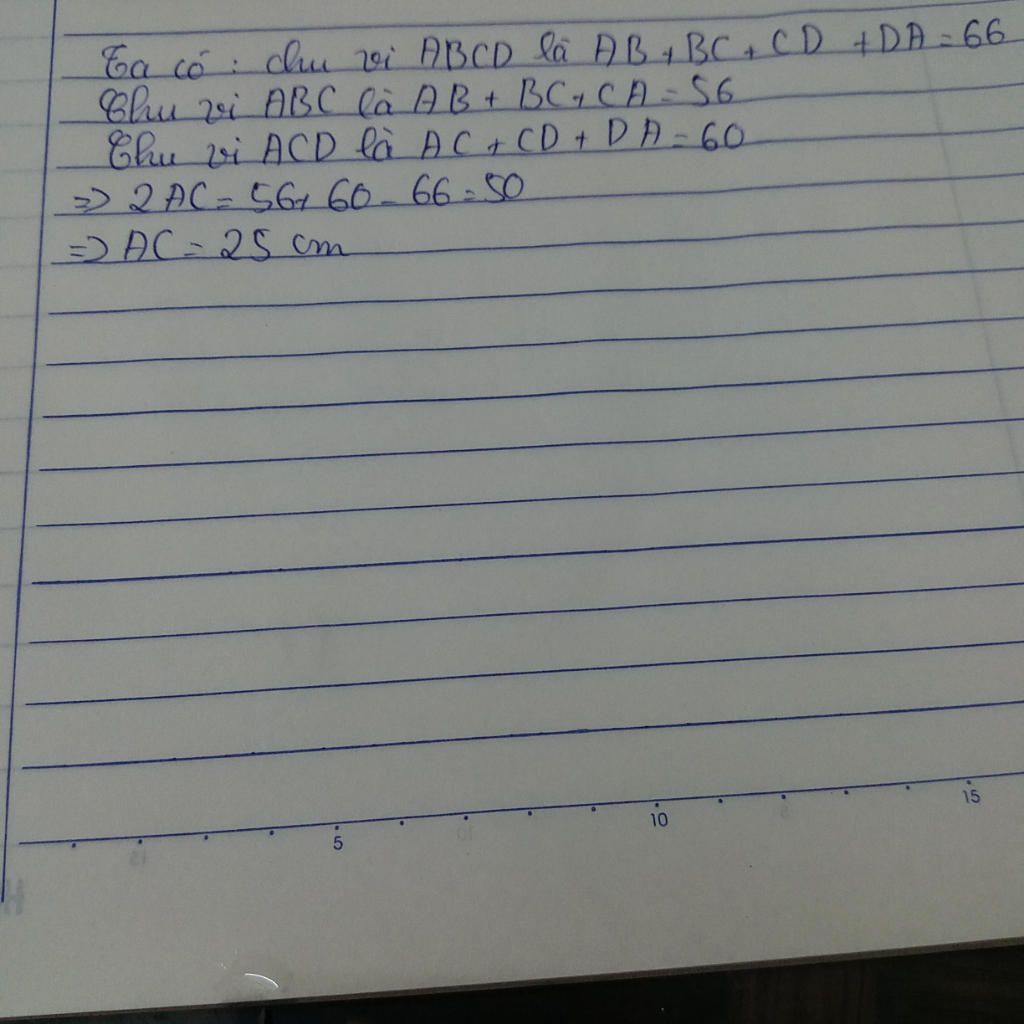 Ta có : chu vi ABCD là AB + BC + CD + DA = 66
Chu vi ABC là AB + BC + CA = 56
Chu vi ACD là AC + CD + DA = 60
=> 2AC = 56 + 60 - 66 = 50
=> AC = 25 cm
5 10 15